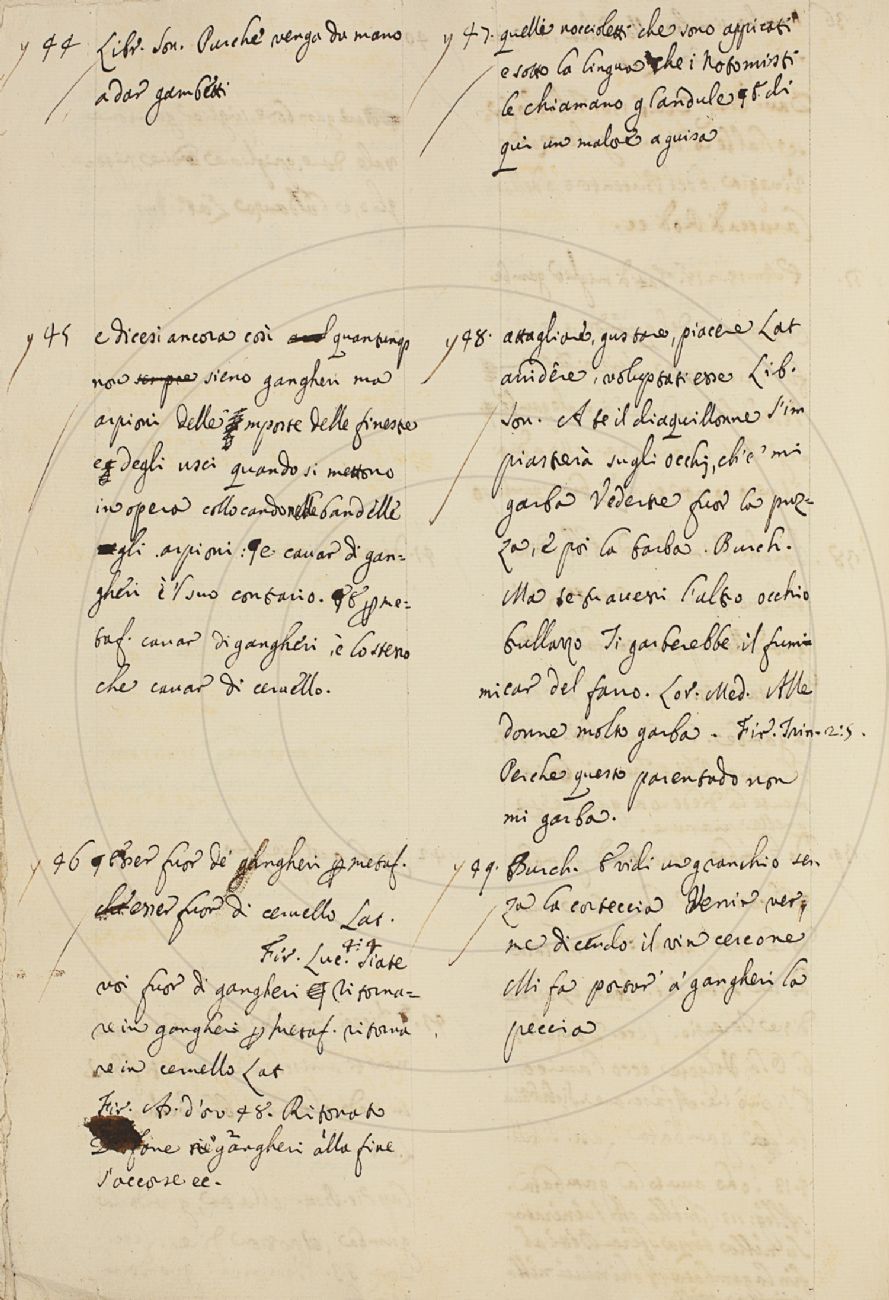 y 44 Libr. Son. Purche venga da mano
a dar gambetti
y 45 e dicesi ancora così quantunq
non sempre sieno gangheri ma
arpioni delle imposte delle finestre
e degli usci quando si mettono
in opera collocando nelle bandelle
gli arpioni: e cavar di gan-
gheri è 'l suo contrario. § E p me-
taf. cavar di gangheri, è lo stesso
che cavar di cervello.
y 46 Esser fuor de gangheri p metaf.
esser fuor di cervello Lat.
Fir. Luc. 4:4 Siate
voi fuor di gangheri ritorna=
re in gangheri p metaf. ritorna
re in cervello Lat
Fir. As. d'oro 48. Ritornato
ne gangheri alla fine
s'accorse ec.
y 47. quelli noccioletti che sono appicati
e sotto la lingua che i Notomisti
le chiamano glandule § E di
qui un malore a guisa
y 48. attagliare, gustare, piacere Lat
arridere, voluptati esse Lib.
Son. A te il diaquillonne s'im
piasterà sugli occhi, ch'e' mi
garba Vederne fuor la puz=
za, e poi la tarba. Burch.
Ma se travessi l'altro occhio
bullazzo Ti garberebbe il fumi=
micar del farro. Lor. Med. Alle
donne molto garba. Fir. Trin. 2:5.
Perche questo parentado non
mi garba.
y 49. Burch. E vidi un granchio sen
za la corteccia Venir ver
me dicendo il vin cercone
Mi fa portar' a' gangheri la
peccia